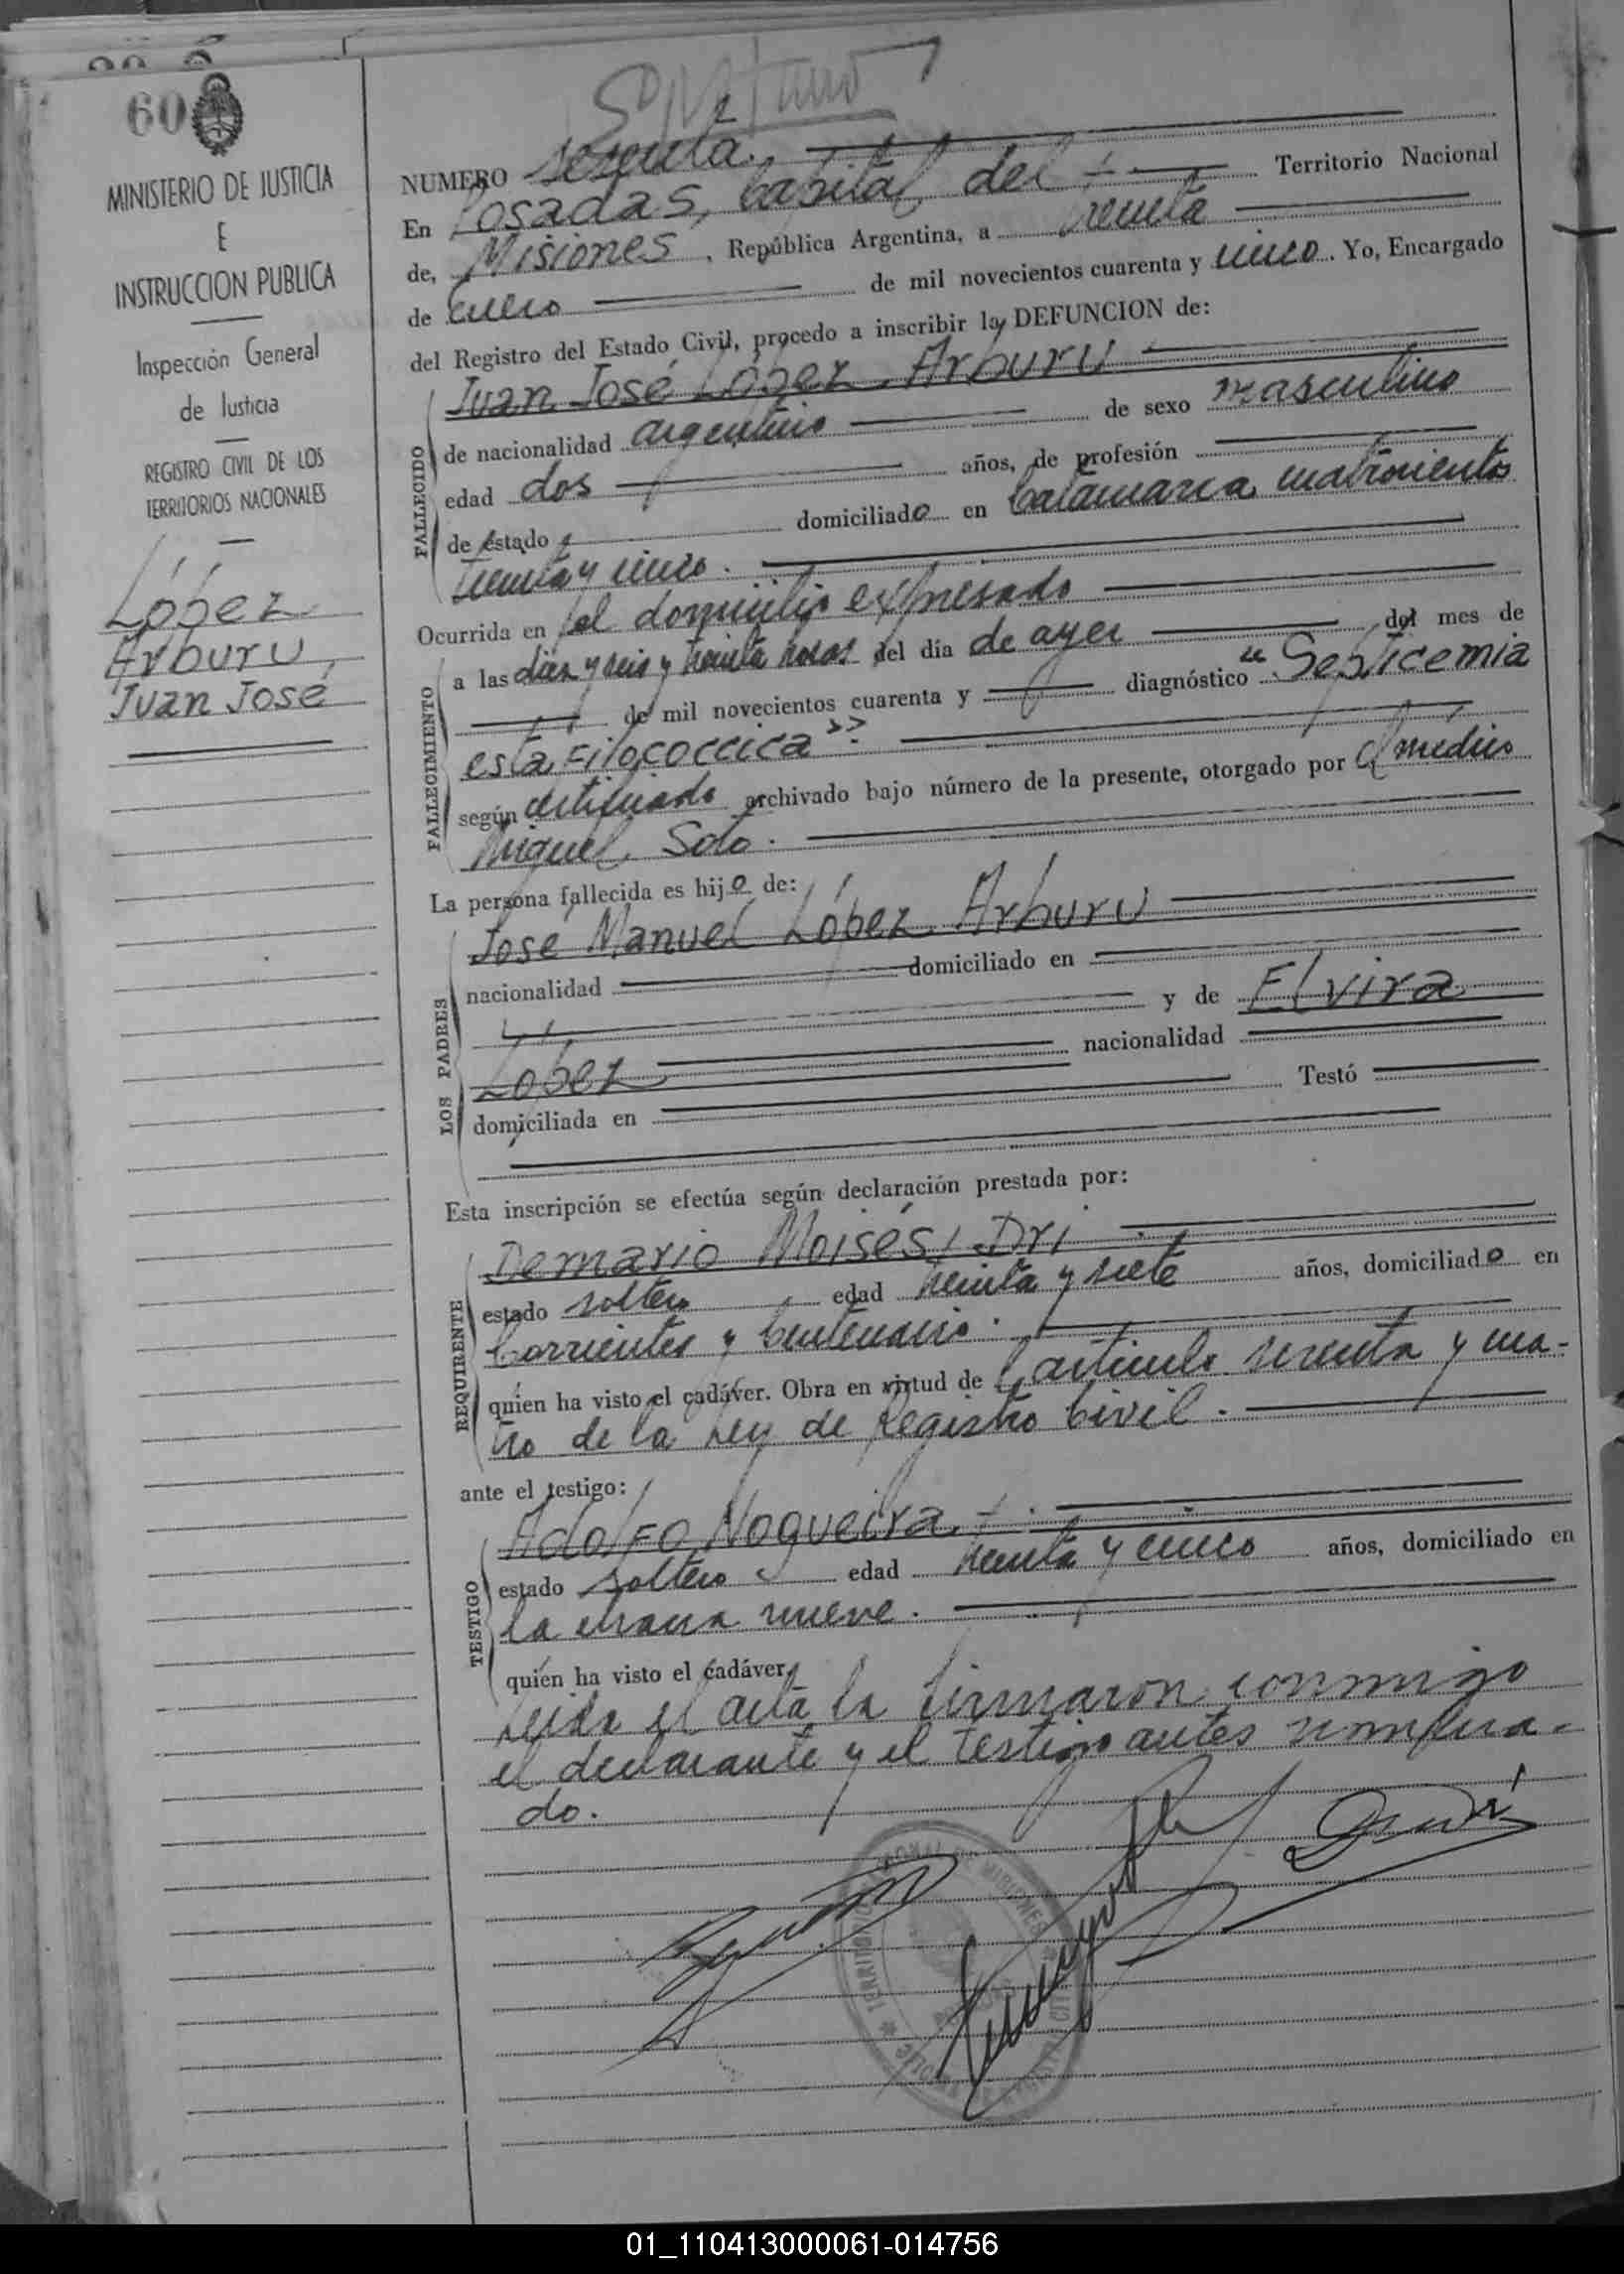 60
MINISTERIO DE JUSTICIA
E
INSTRUCCION PUBLICA
Inspección General
de Justicia
REGISTRO CIVIL DE LOS
TERRITORIOS NACIONALES
López
Arburu,
Juan José
NUMERO sesenta.
En Posadas, Capital del Territorio Nacional
de, Misiones, República Argentina, a treinta
de Enero de mil novecientos cuarenta y cinco. Yo, Encargado
del Registro del Estado Civil, procedo a inscribir la DEFUNCION de:
FALLECIDO
Juan José López Arburu
de nacionalidad argentino de sexo masculino
edad dos años, de profesión
de estado domiciliado en Catamarca cuatrocientos
treinta y cinco.
Ocurrida en el domicilio expresado
FALLECIMIENTO
a las diez y seis y treinta horas del día de ayer del mes de
de mil novecientos cuarenta y diagnóstico "Septicemia
estafilococcica".
según certificado archivado bajo número de la presente, otorgado por el médico
Miguel Solo.
La persona fallecida es hijo de:
LOS PADRES
José Manuel López Arburu
nacionalidad domiciliado en
y de Elvira
López nacionalidad
domiciliada en Testó
Esta inscripción se efectúa según declaración prestada por:
REQUIRENTE
Demario Moisés Dri.
estado soltero edad treinta y siete años, domiciliado en
Corrientes y Centenario.
quien ha visto el cadáver. Obra en virtud del artículo sesenta y cua-
tro de la Ley de Registro Civil.
ante el testigo:
TESTIGO
Adolfo Nogueira.
estado soltero edad treinta y cinco años, domiciliado en
la chacra nueve.
quien ha visto el cadáver,
Leída el acta la firmaron conmigo
el declarante y el testigo antes nombra-
do.
01_110413000061-014756